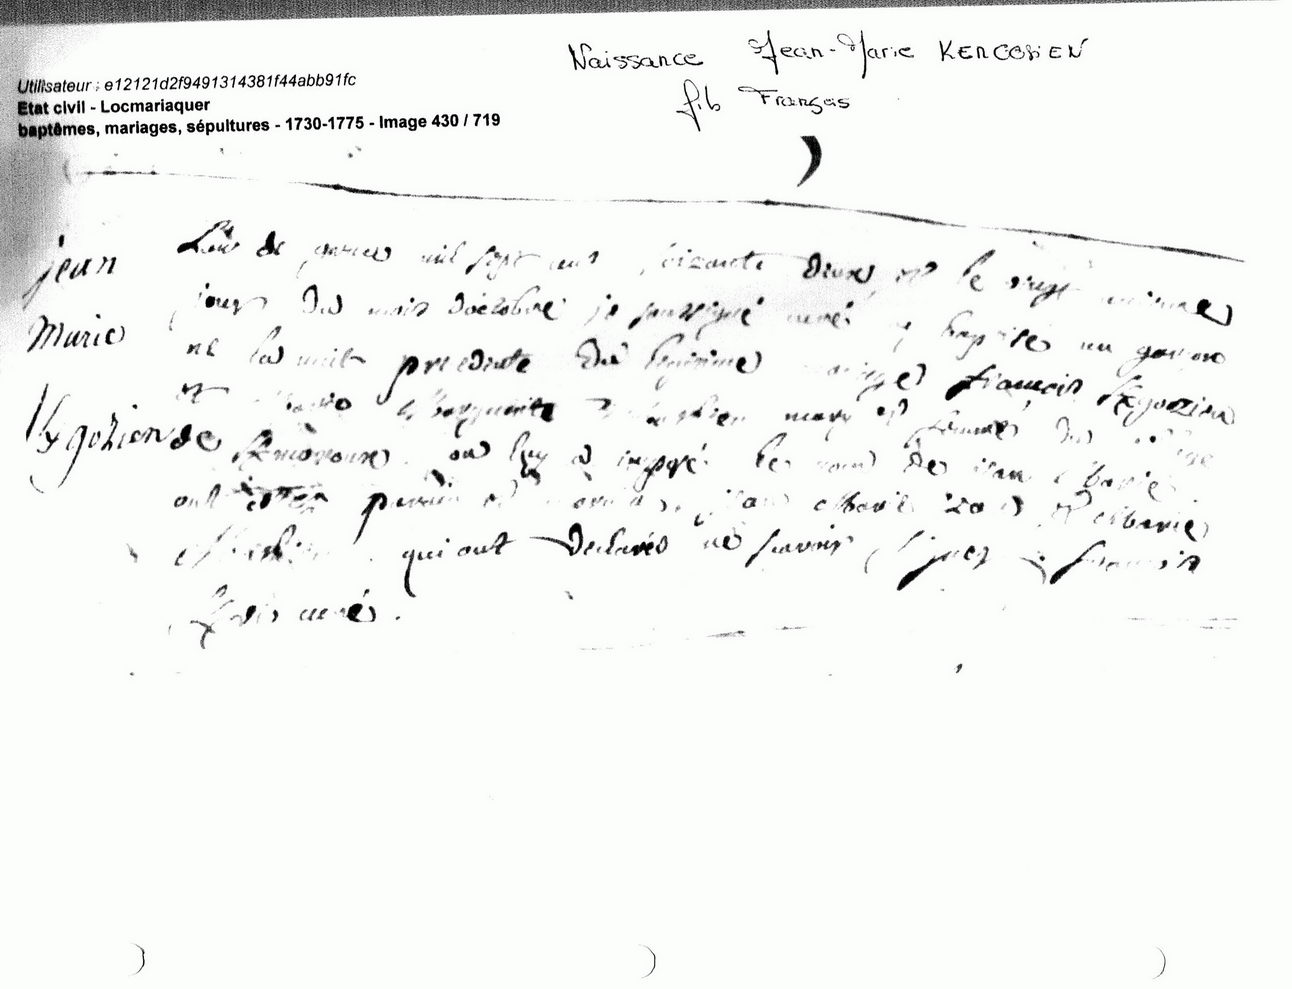 Naissance Jean-Marie KERGOSIEN
fils François
Utilisateur : e12121d2f9491314381f44abb91fc
Etat civil - Locmariaquer
baptêmes, mariages, sépultures - 1730-1775 - Image 430 / 719
jean
Marie
Kgozien
L'an de grace mil sept cent soixante deux et le vingt
jour du mois d'octobre je soussigné curé ay baptisé un garçon
né la nuit precedente du légitime mariage François Kgozien
et Marguerite mary et femme du
de on luy a imposé le nom de jean Marie
ont parain et jean Marie et Marie
qui ont declarés ne savoir signer François
curé.